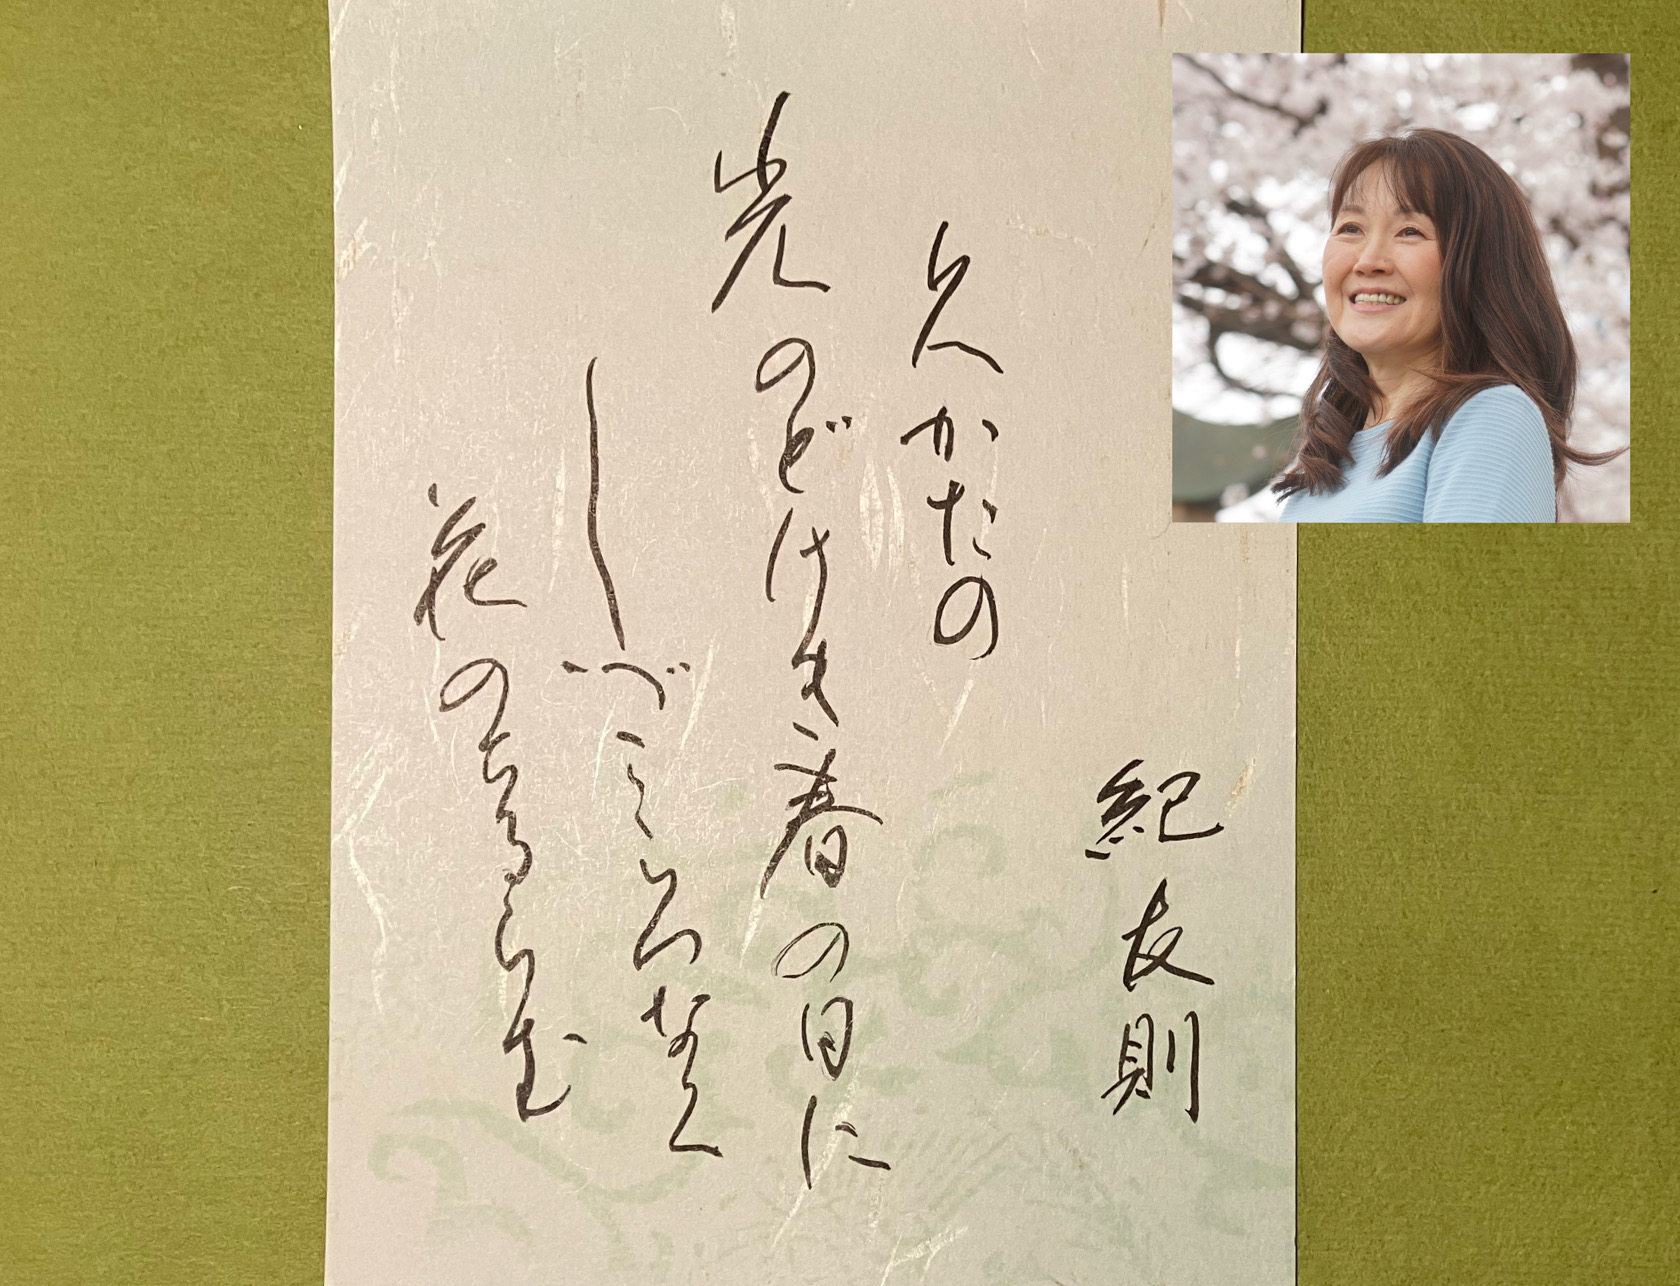 紀友則
久かたの
光のどけき春の日に
しづこころなく
花のちるらむ